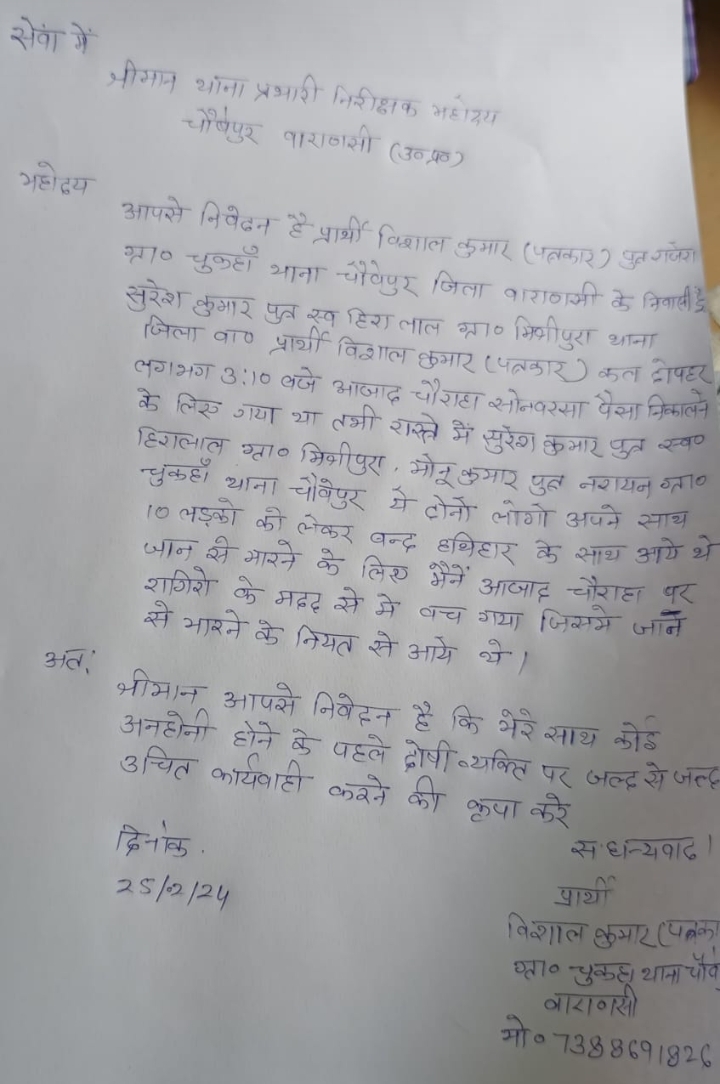 सेवां में
श्रीमान थाना प्रभारी निरीक्षक महोदय
चौबेपुर वाराणसी (उ०प्र०)
महोदय
आपसे निवेदन है प्रार्थी विशाल कुमार (पत्रकार) पुत्र राजेश
ग्रा० चुकहाँ थाना चौवेपुर जिला वाराणसी के निवासी है
सुरेश कुमार पुत्र स्व हिरा लाल ग्रा० मिश्रीपुरा थाना
जिला वा० प्रार्थी विशाल कुमार (पत्रकार) कल दोपहर
लगभग 3:10 वजे आजाद चौराहा सोनवरसा पैसा निकालने
के लिए गया था तभी रास्ते में सुरेश कुमार पुत्र स्व०
हिरालाल ग्रा० मिश्रीपुरा, मोनू कुमार पुत्र नरायन ग्रा०
चुकहाँ थाना चौवेपुर ये दोनों लोगो अपने साथ
10 लड़को को लेकर वन्द हथिहार के साथ आये थे
जान से मारने के लिए मैनें आजाद चौराहा पर
रागिरो के मदद से मे वच गया जिसमे जान
से मारने के नियत से आये थे।
अतः
श्रीमान आपसे निवेदन है कि मेरे साथ कोई
अनहोनी होने के पहले दोषी व्यक्ति पर जल्द से जल्द
उचित कार्यवाही करने की कृपा करे
दिनांक.
25/2/24
सधन्यवाद।
प्रार्थी
विशाल कुमार (पत्रका
ग्रा० चुकहा थाना चौवे
वाराणसी
मो० 7388691826